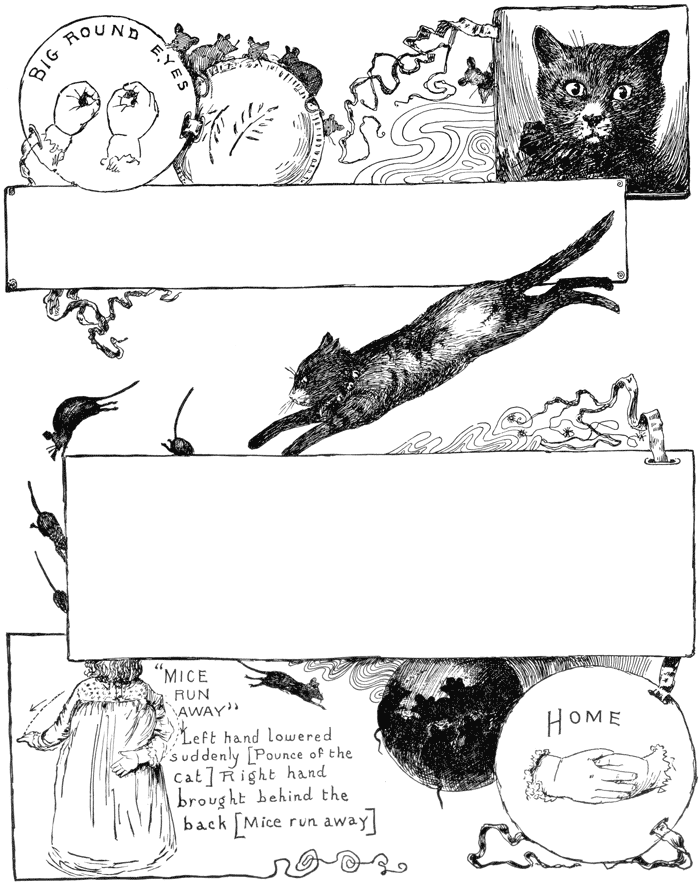 BIG ROUND EYES
"MICE
RUN
AWAY"
Left hand lowered
suddenly [Pounce of the
cat] Right hand
brought behind the
back [Mice run away]
HOME